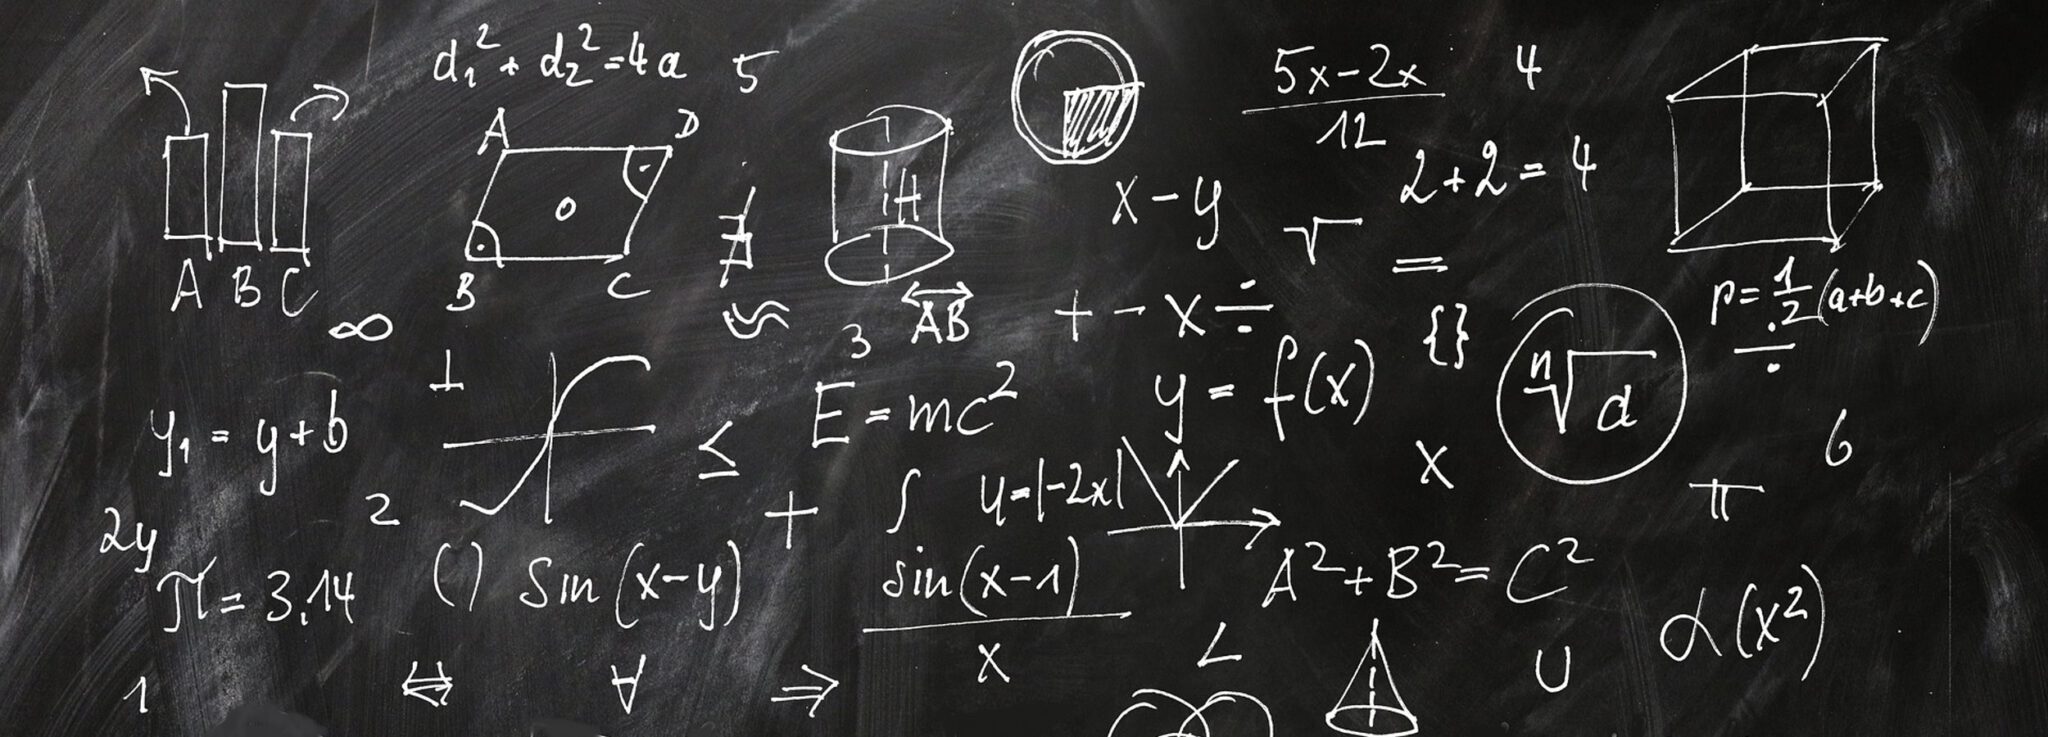 d₁² + d₂² = 4a
5
5x-2x
12
4
A
D
2+2=4
H
x-y
√
=
A B C
B
C
∄
∞
≈
3
AB
+ - x ÷
{}
p = 1/2 (a+b+c)
÷
⊥
E = mc²
y = f(x)
ⁿ√a
y₁ = y+b
≤
x
6
2
+
∫
y=|-2x|
π
2y
π = 3,14
()
sin(x-y)
sin(x-1)
x
A² + B² = C²
α(x²)
1
⇔
∀
⇒
∠
U